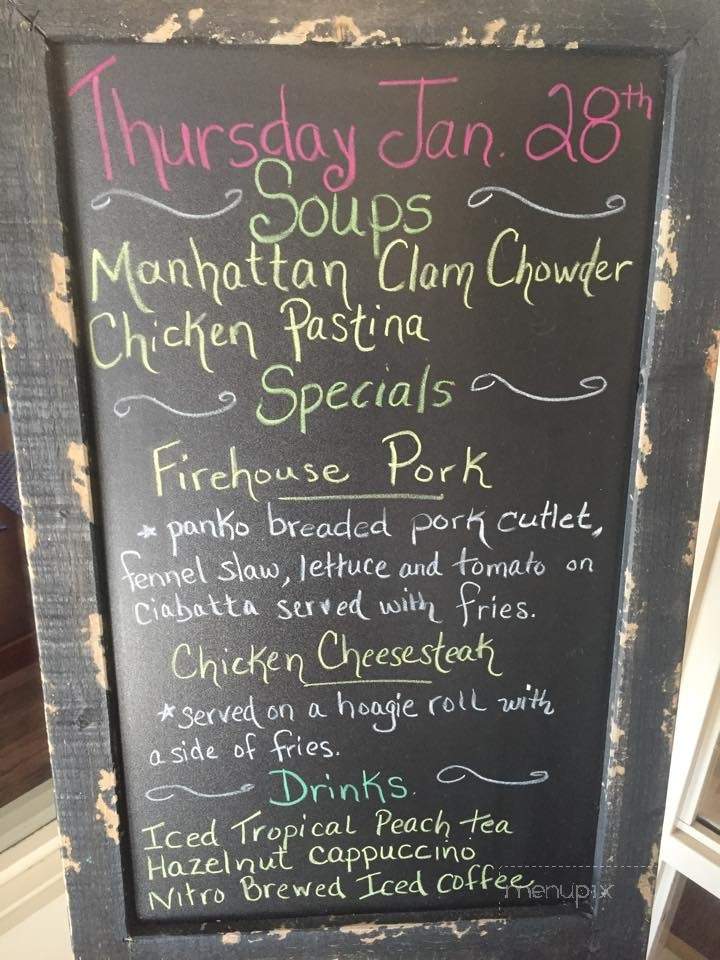 Thursday Jan. 28th
Soups
Manhattan Clam Chowder
Chicken Pastina
Specials
Firehouse Pork
* panko breaded pork cutlet,
fennel slaw, lettuce and tomato on
ciabatta served with fries.
Chicken Cheesesteak
* served on a hoagie roll with
a side of fries.
Drinks.
Iced Tropical Peach tea
Hazelnut cappuccino
Nitro Brewed Iced coffee
menupix